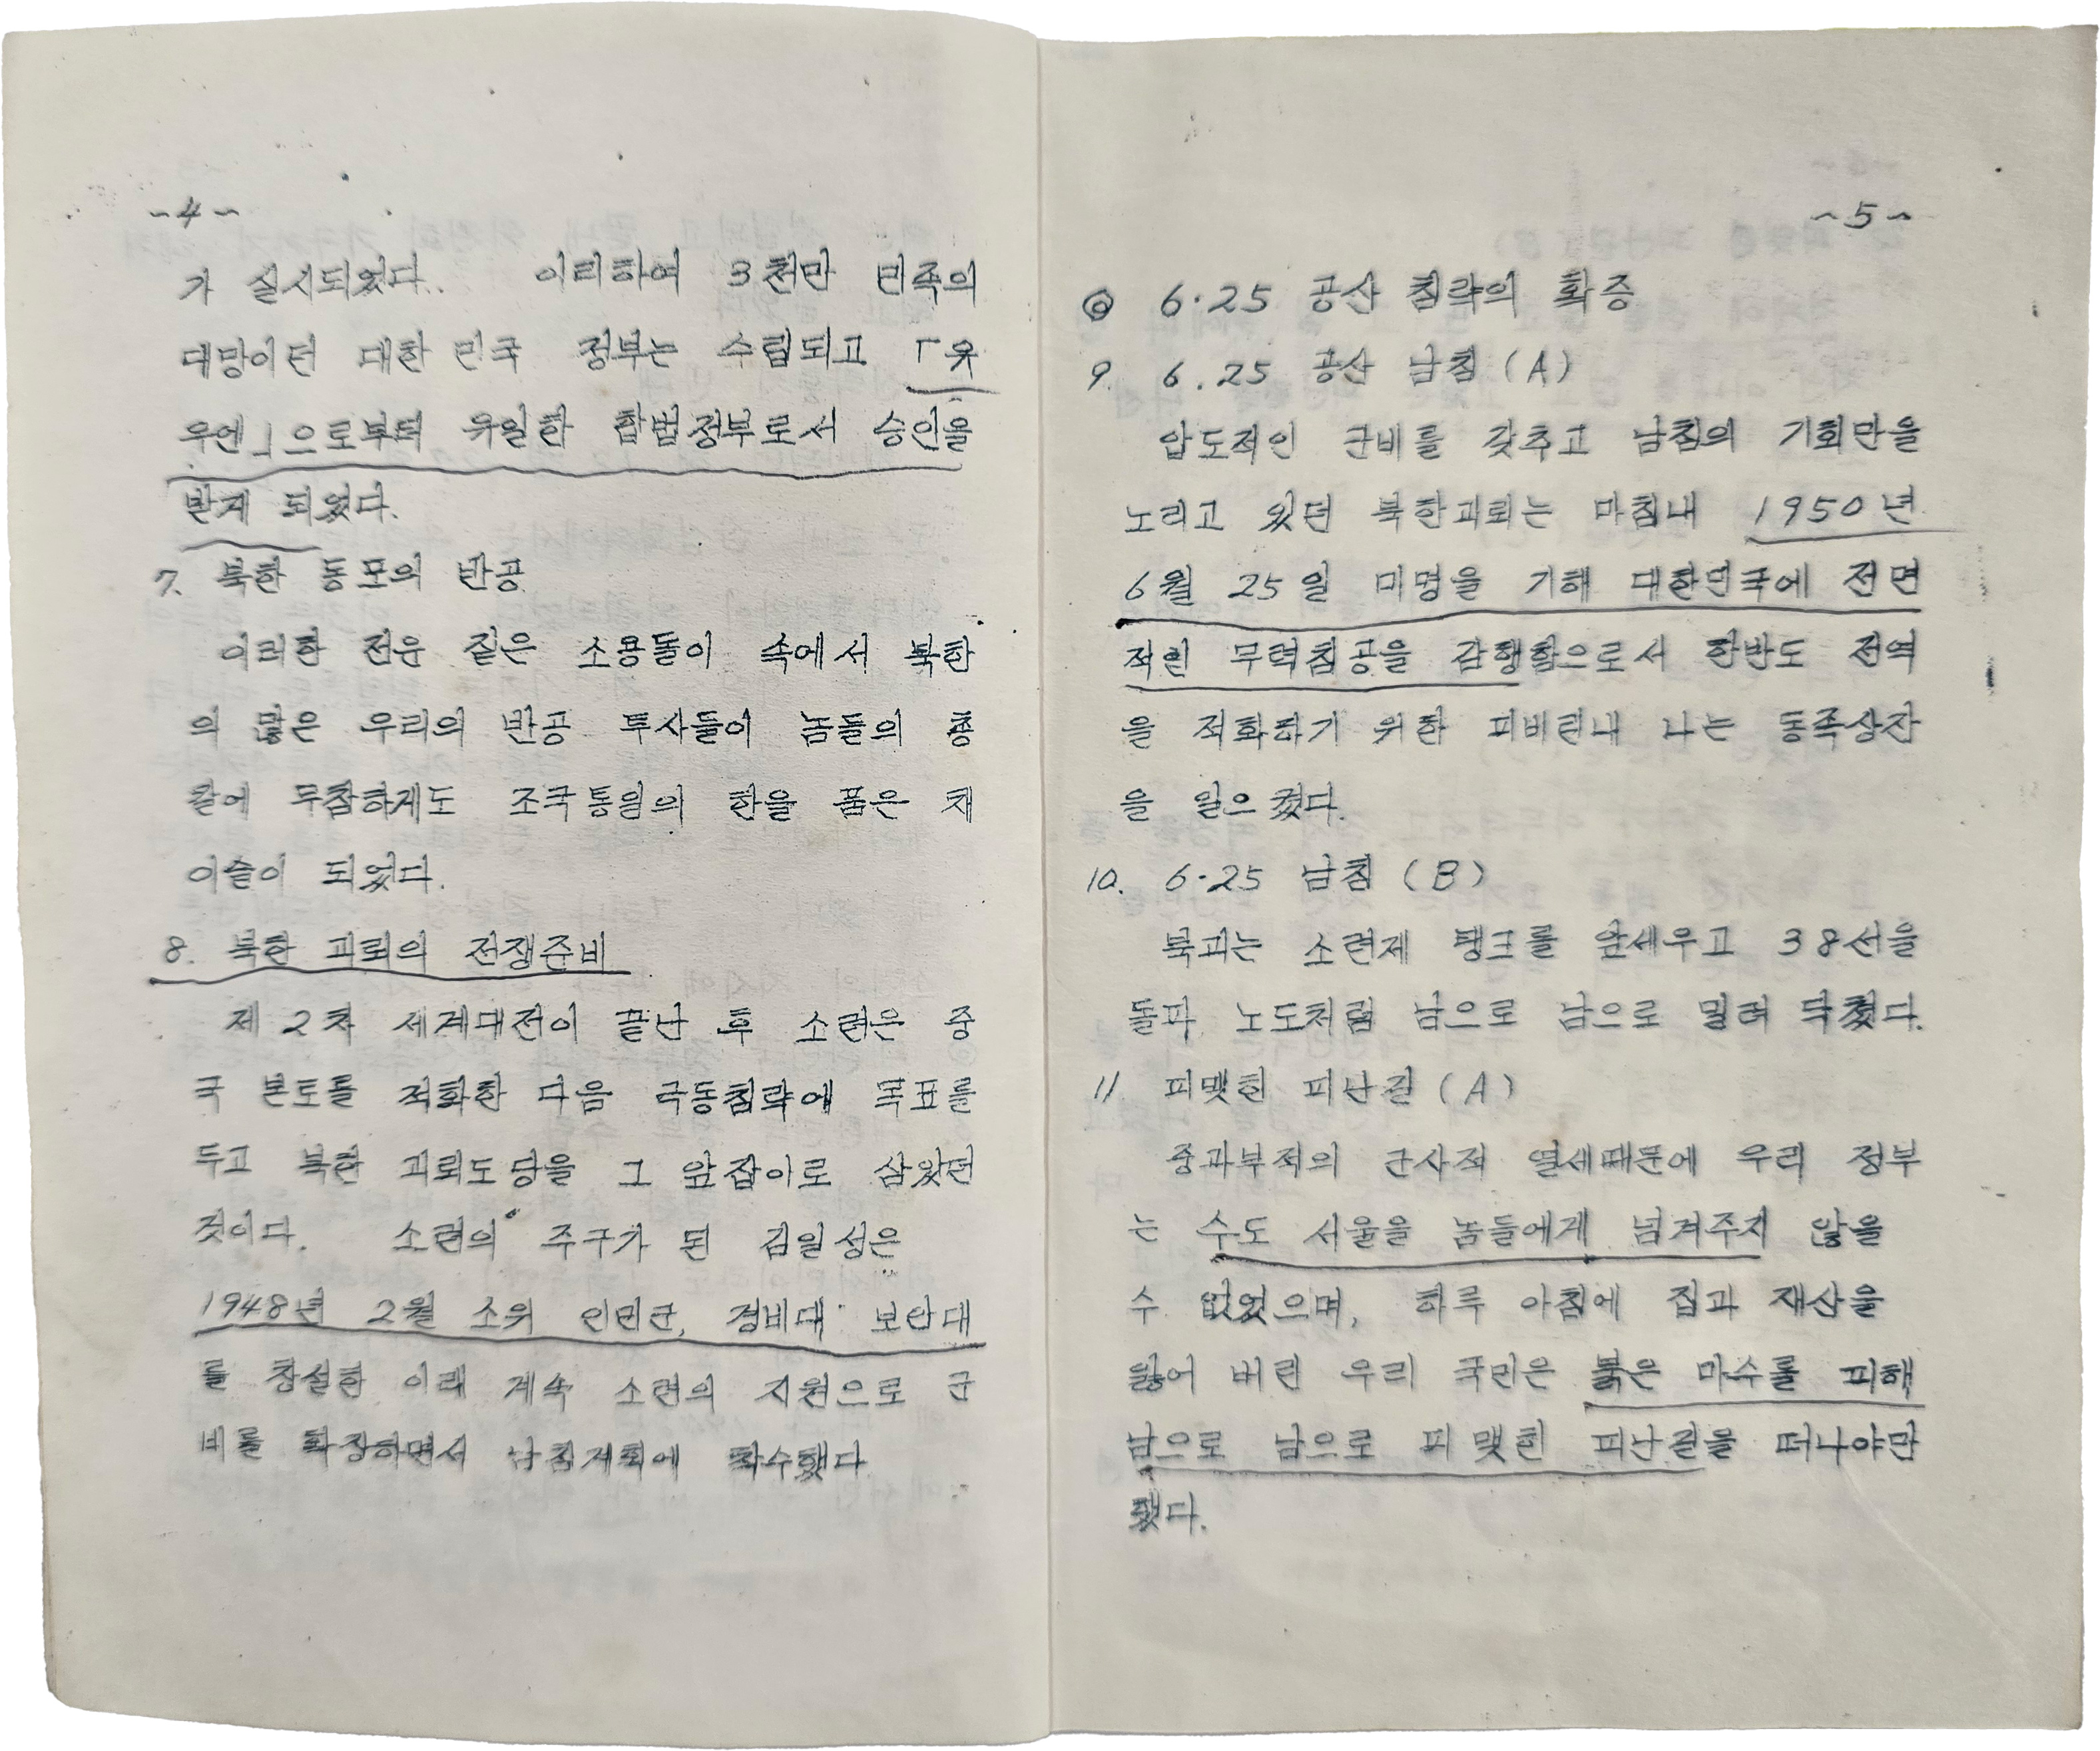 -4-
가 실시되었다. 이리하여 3천만 민족의
대망이던 대한 민국 정부는 수립되고 「유
우엔」으로부터 유일한 합법정부로서 승인을
받게 되었다.
7. 북한 동포의 반공
이러한 전운 짙은 소용돌이 속에서 북한
의 많은 우리의 반공 투사들이 놈들의 총
칼에 무참하게도 조국통일의 한을 품은 채
이슬이 되었다.
8. 북한 괴뢰의 전쟁준비
제 2차 세계대전이 끝난 후 소련은 중
국 본토를 적화한 다음 극동침략에 목표를
두고 북한 괴뢰도당을 그 앞잡이로 삼았던
것이다. 소련의 주구가 된 김일성은
1948년 2월 소위 인민군, 경비대 보안대
를 창설한 이래 계속 소련의 지원으로 군
비를 확장하면서 남침계획에 착수했다
-5-
◎ 6·25 공산 침략의 확증
9. 6.25 공산 남침 (A)
압도적인 군비를 갖추고 남침의 기회만을
노리고 있던 북한괴뢰는 마침내 1950년
6월 25일 미명을 기해 대한민국에 전면
적인 무력침공을 감행함으로서 한반도 전역
을 적화하기 위한 피비린내 나는 동족상잔
을 일으켰다.
10. 6·25 남침 (B)
북괴는 소련제 탱크를 앞세우고 38선을
돌파 노도처럼 남으로 남으로 밀려 닥쳤다.
11 피맺힌 피난길 (A)
중과부적의 군사적 열세때문에 우리 정부
는 수도 서울을 놈들에게 넘겨주지 않을
수 없었으며, 하루 아침에 집과 재산을
잃어 버린 우리 국민은 붉은 마수를 피해
남으로 남으로 피 맺힌 피난길을 떠나야만
했다.